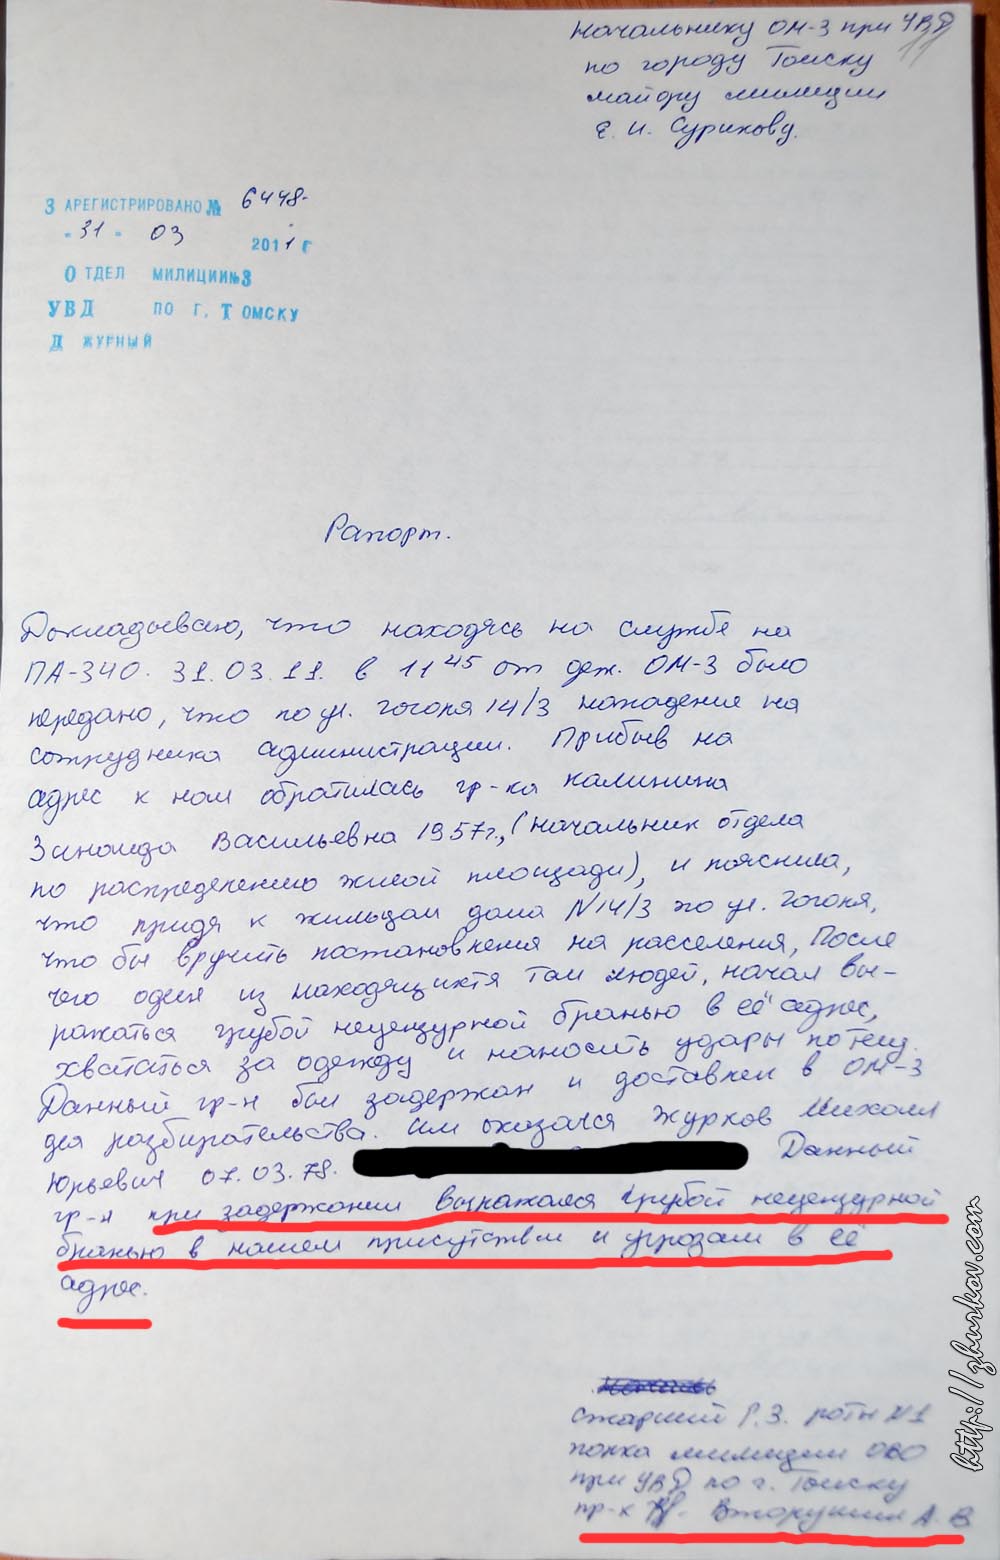 Начальнику ОМ-3 при УВД
по городу Томску
майору милиции
Е. И. Сурикову.
ЗАРЕГИСТРИРОВАНО № 6448-
"31" 03 2011 г
ОТДЕЛ МИЛИЦИИ №3
УВД ПО Г. ТОМСКУ
Д ЖУРНЫЙ
Рапорт.
Докладываю, что находясь на службе на
ПА-340. 31.03.11. в 11 45 от деж. ОМ-3 было
передано, что по ул. Гоголя 14/3 нападение на
сотрудника администрации. Прибыв на
адрес к нам обратилась гр-ка Калинина
Зинаида Васильевна 1957г., (начальник отдела
по распределению жилой площади), и пояснила,
что придя к жильцам дома N14/3 по ул. Гоголя,
что бы вручить постановления на расселения, После
чего один из находящихтя там людей, начал вы-
ражаться грубой нецензурной бранью в её адрес,
хвататься за одежду и наносить удары по телу.
Данный гр-н был задержан и доставлен в ОМ-3
для разбирательства. Им оказался Журков Михаил
Юрьевич 07.03.78. Данный
гр-н при задержании выражался грубой нецензурной
бранью в нашем присутствии и угрозами в её
адрес.
старший Г.З. роты N1
полка милиции ОВО
при УВД по г. Томску
пр-к Вторушин А. В.
http://zhurkov.com